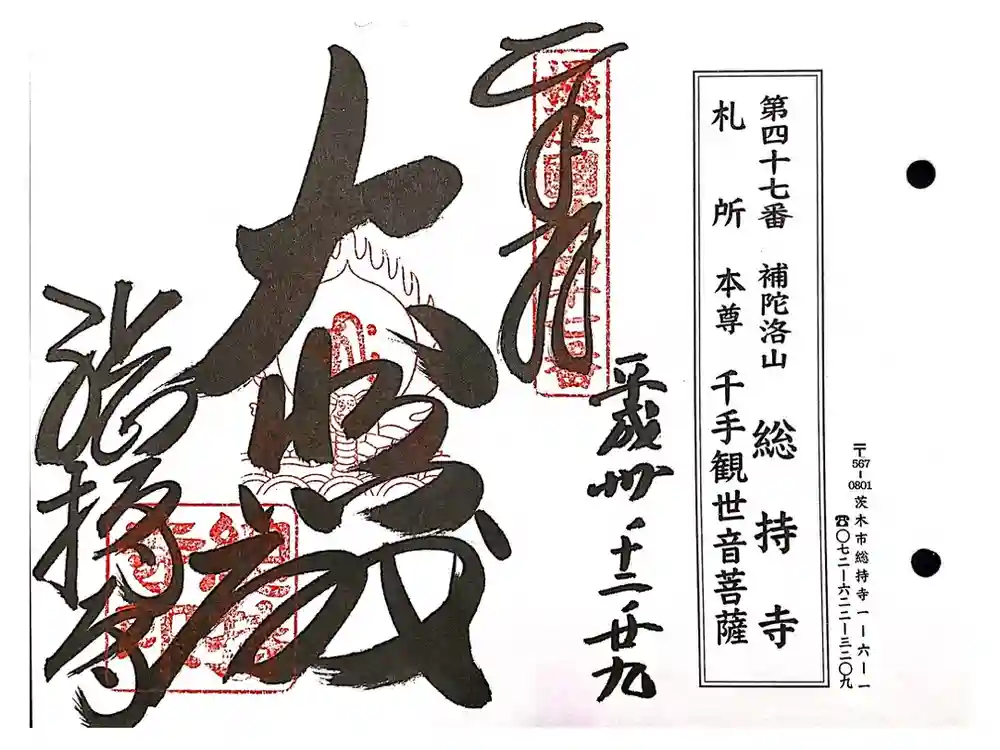 第四十七番 補陀洛山 総持寺
札所 本尊 千手観世音菩薩
〒567-0801 茨木市総持寺一ー六ー一
☎〇七二ー六二二ー三二〇九
奉拝
平成卅 十二 廿九
大悲殿
総持寺